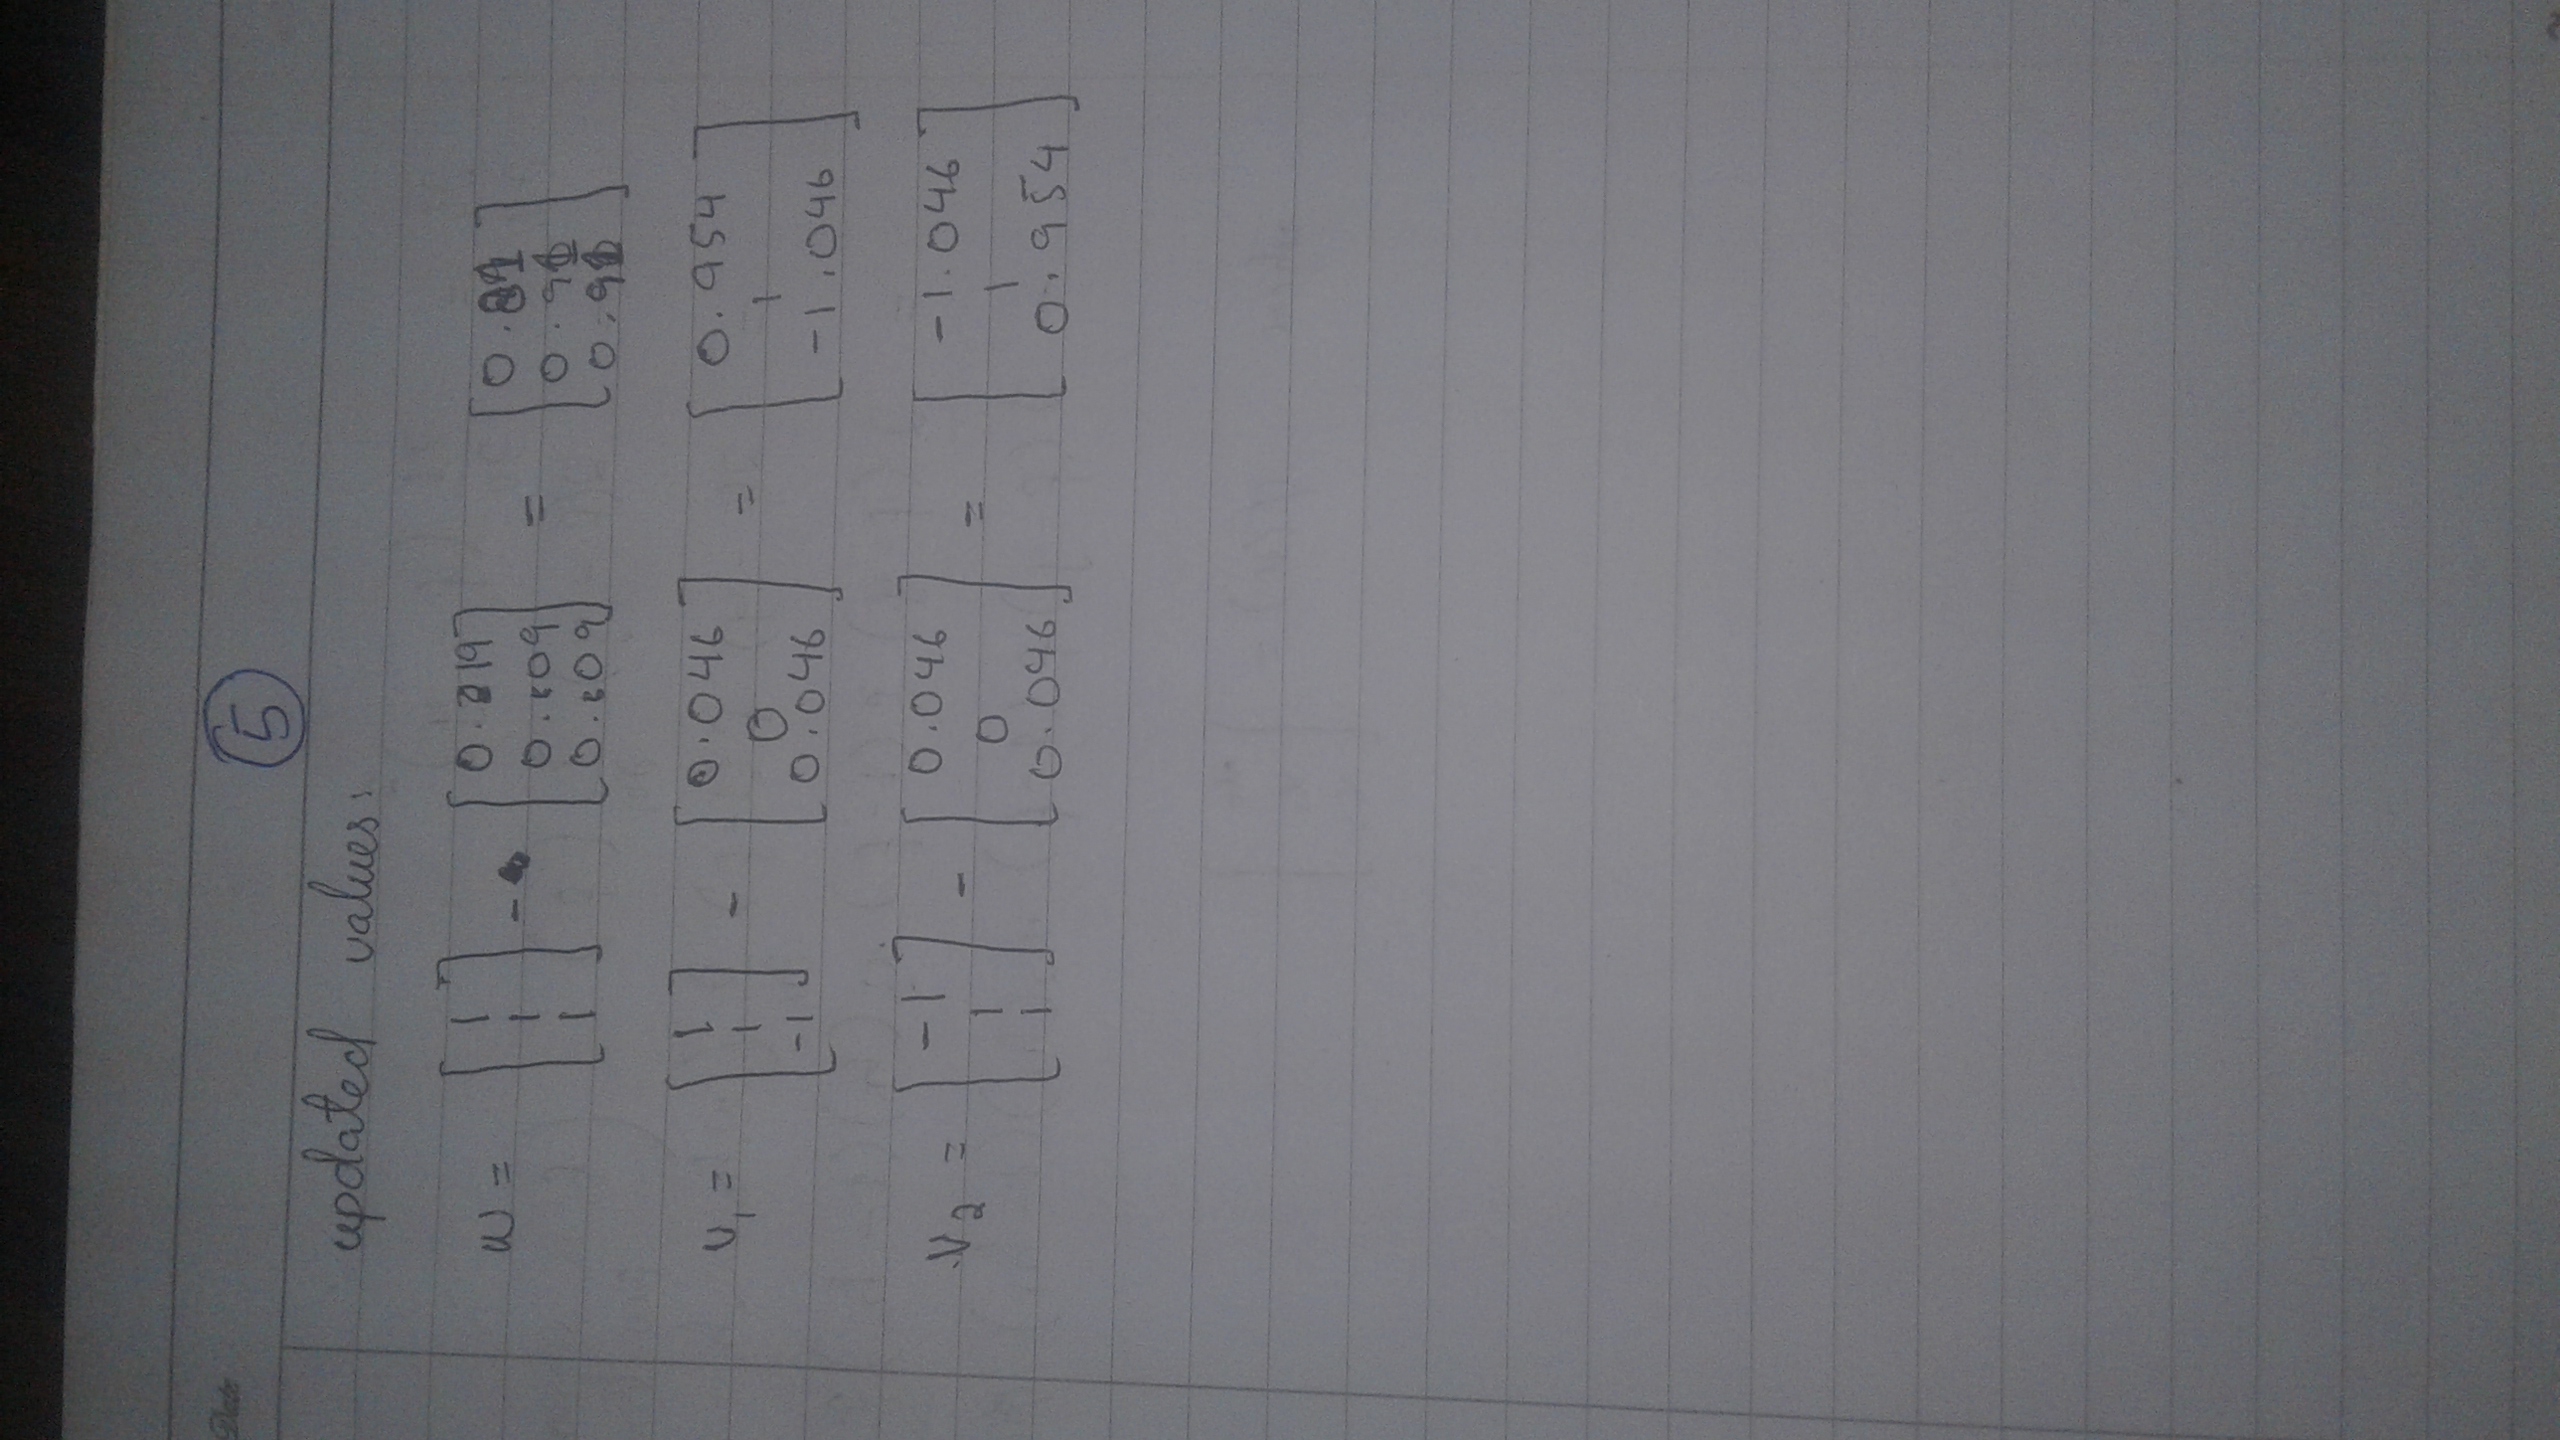 Date
5
updated values:
w = [1 1 1] - [0.219 0.109 0.109] = [0.81 0.91 0.91]
v1 = [1 1 -1] - [0.046 0 0.046] = [0.954 1 -1.046]
v2 = [-1 1 1] - [0.046 0 0.046] = [-1.046 1 0.954]